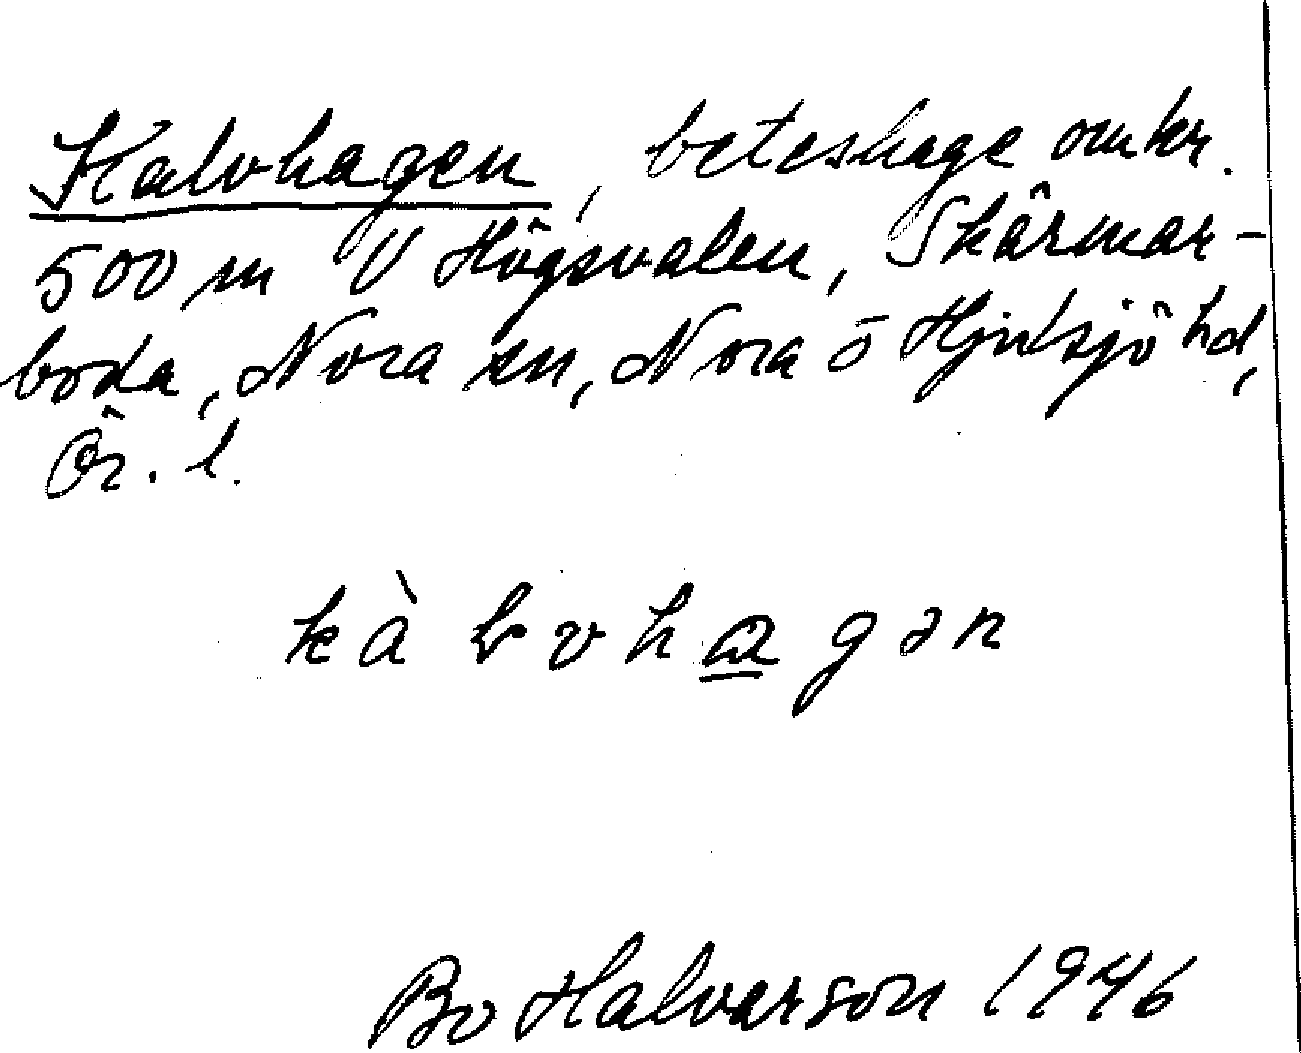 Kalvhagen, beteshage omkr.
500 m V Högsvalen, Skärmar-
boda, Nora sn, Nora o Hjulsjö hd,
Ör. l.
kàƚvhagən
Bo Halvarson 1946